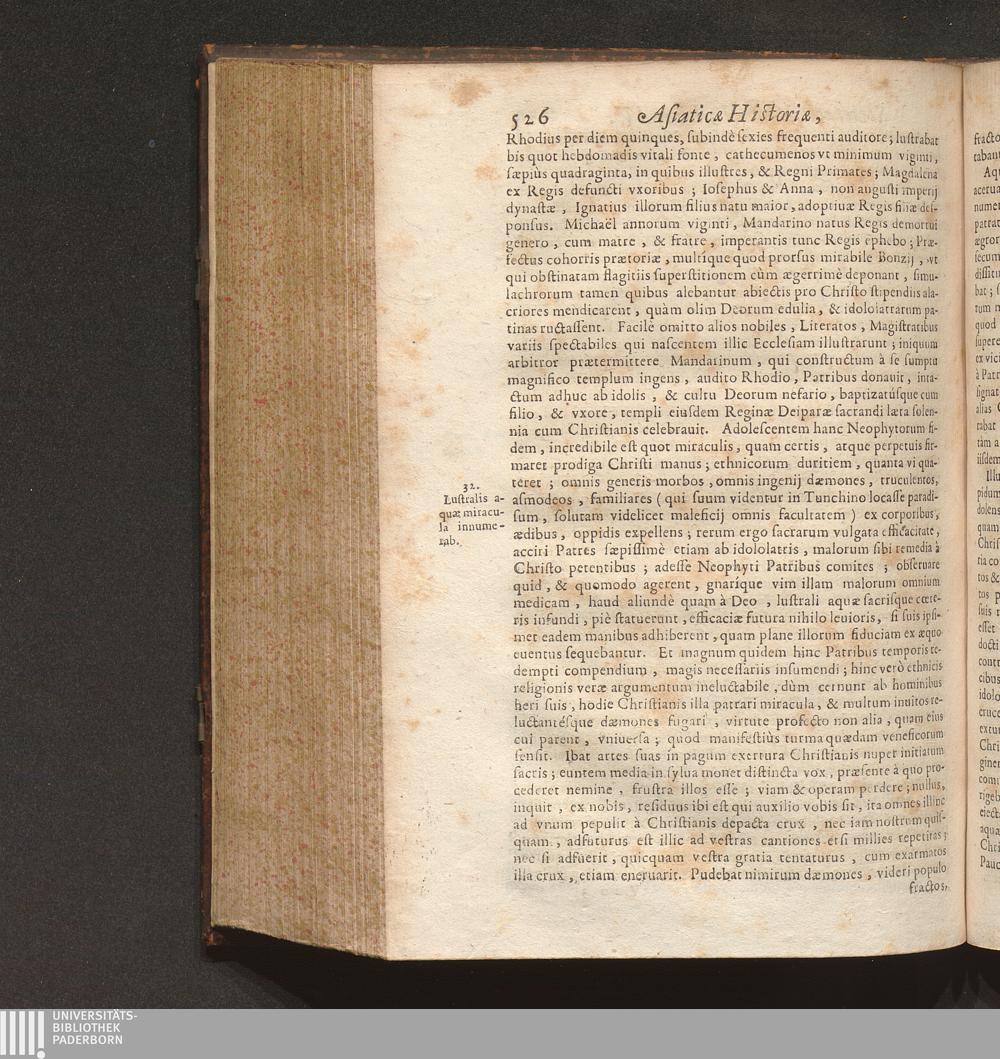 526 Asiaticæ Historiæ,
Rhodius per diem quinques, subindè sexies frequenti auditore; lustrabat
bis quot hebdomadis vitali fonte, cathecumenos vt minimum viginti,
sæpiùs quadraginta, in quibus illustres, & Regni Primates; Magdalena
ex Regis defuncti vxoribus; Iosephus & Anna, non angusti imperij
dynastæ, Ignatius illorum filius natu maior, adoptiuæ Regis filiæ des-
ponsus. Michaël annorum viginti, Mandarino natus Regis demortui
genero, cum matre, & fratre, imperantis tunc Regis ephebo; Præ-
fectus cohortis prætoriæ, multique quod prorsus mirabile Bonzij, vt
qui obstinatam flagitiis superstitionem cùm ægerrimè deponant, simu-
lachrorum tamen quibus alebantur abiectis pro Christo stipendiis ala-
criores mendicarent, quàm olim Deorum edulia, & idololatrarum pa-
tinas ructassent. Facilè omitto alios nobiles, Literatos, Magistratibus
variis spectabiles qui nascentem illic Ecclesiam illustrarunt; iniquum
arbitror prætermittere Mandarinum, qui constructum à se sumptu
magnifico templum ingens, audito Rhodio, Patribus donauit, inta-
ctum adhuc ab idolis, & cultu Deorum nefario, baptizatúsque cum
filio, & vxore, templi eiusdem Reginæ Deiparæ sacrandi læta solen-
nia cum Christianis celebrauit. Adolescentem hanc Neophytorum fi-
dem, incredibile est quot miraculis, quam certis, atque perpetuis fir-
maret prodiga Christi manus; ethnicorum duritiem, quanta vi qua-
teret; omnis generis morbos, omnis ingenij dæmones, truculentos,
asmodeos, familiares (qui suum videntur in Tunchino locasse paradi-
sum, solutam videlicet maleficij omnis facultatem) ex corporibus,
ædibus, oppidis expellens; rerum ergo sacrarum vulgata efficacitate,
acciri Patres sæpissimè etiam ab idololatris, malorum sibi remedia à
Christo petentibus; adesse Neophyti Patribus comites; obseruare
quid, & quomodo agerent, gnaríque vim illam malorum omnium
medicam, haud aliundè quam à Deo, lustrali aquæ sacrisque cœte-
ris infundi, piè statuerunt, efficaciæ futura nihilo leuioris, si suis ipsi-
met eadem manibus adhiberent, quam plane illorum fiduciam ex æquo
euentus sequebantur. Et magnum quidem hinc Patribus temporis re-
dempti compendium, magis necessariis insumendi; hinc verò ethnicis
religionis veræ argumentum ineluctabile, dùm cernunt ab hominibus
heri suis, hodie Christianis illa patrari miracula, & multum inuitos re-
luctantésque dæmones fugari, virtute profecto non alia, quam eius
cui parent, vniuersa; quod manifestiùs turma quædam veneficorum
sensit. Ibat artes suas in pagum exertura Christianis nuper initiatum
sacris; euntem media in sylua monet distincta vox, præsente à quo pro-
cederet nemine, frustra illos esse; viam & operam perdere; nullus,
inquit, ex nobis, residuus ibi est qui auxilio vobis sit, ita omnes illinc
ad vnum pepulit à Christianis depacta crux, nec iam nostrum quis-
quam, adfuturus est illic ad vestras cantiones etsi millies repetitas;
nec si adfuerit, quicquam vestra gratia tentaturus, cum exarmatos
illa crux, etiam eneruarit. Pudebat nimirum dæmones, videri populo
fractos,
32.
Lustralis a-
quæ miracu-
la innume-
rab.
UNIVERSITÄTS-
BIBLIOTHEK
PADERBORN